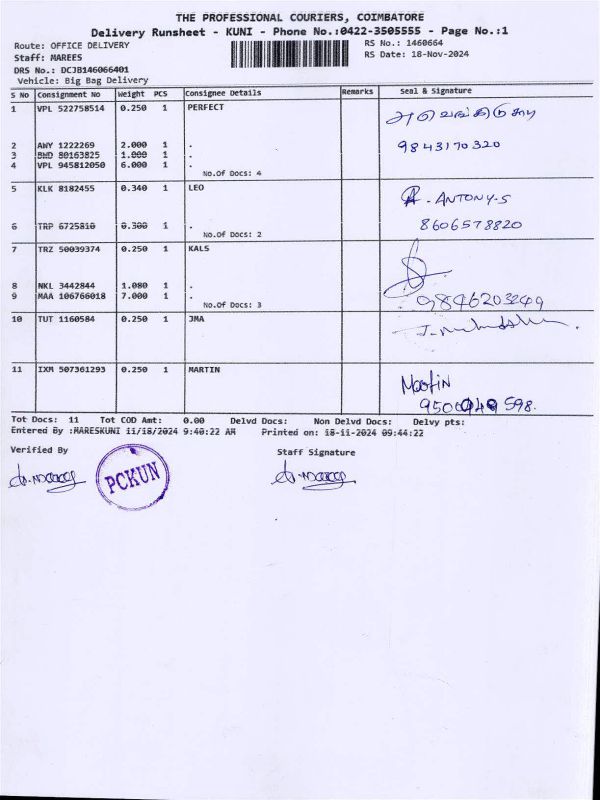 THE PROFESSIONAL COURIERS, COIMBATORE
Delivery Runsheet - KUNI - Phone No.:0422-3505555 - Page No.:1
Route: OFFICE DELIVERY RS No.: 1460664
Staff: MAREES RS Date: 18-Nov-2024
DRS No.: DCJB146066401
Vehicle: Big Bag Delivery
S No Consignment No Weight PCS Consignee Details Remarks Seal & Signature
1 VPL 522758514 0.250 1 PERFECT
2 AWY 1222269 2.000 1 . 9843170320
3 BWD 80163825 1.000 1 .
4 VPL 945812050 6.000 1 .
No.Of Docs: 4
5 KLK 8182455 0.340 1 LEO ANTONY-S
6 TRP 6725810 0.300 1 . 8606578820
No.Of Docs: 2
7 TRZ 50039374 0.250 1 KALS
8 NKL 3442844 1.080 1 .
9 MAA 106766018 7.000 1 . 9846203249
No.Of Docs: 3
10 TUT 1160584 0.250 1 JMA
11 IXM 507361293 0.250 1 MARTIN Martin
598.
Tot Docs: 11 Tot COD Amt: 0.00 Delvd Docs: Non Delvd Docs: Delvy pts:
Entered By :MARESKUNI 11/18/2024 9:40:22 AM Printed on: 18-11-2024 09:44:22
Verified By Staff Signature
PCKUN